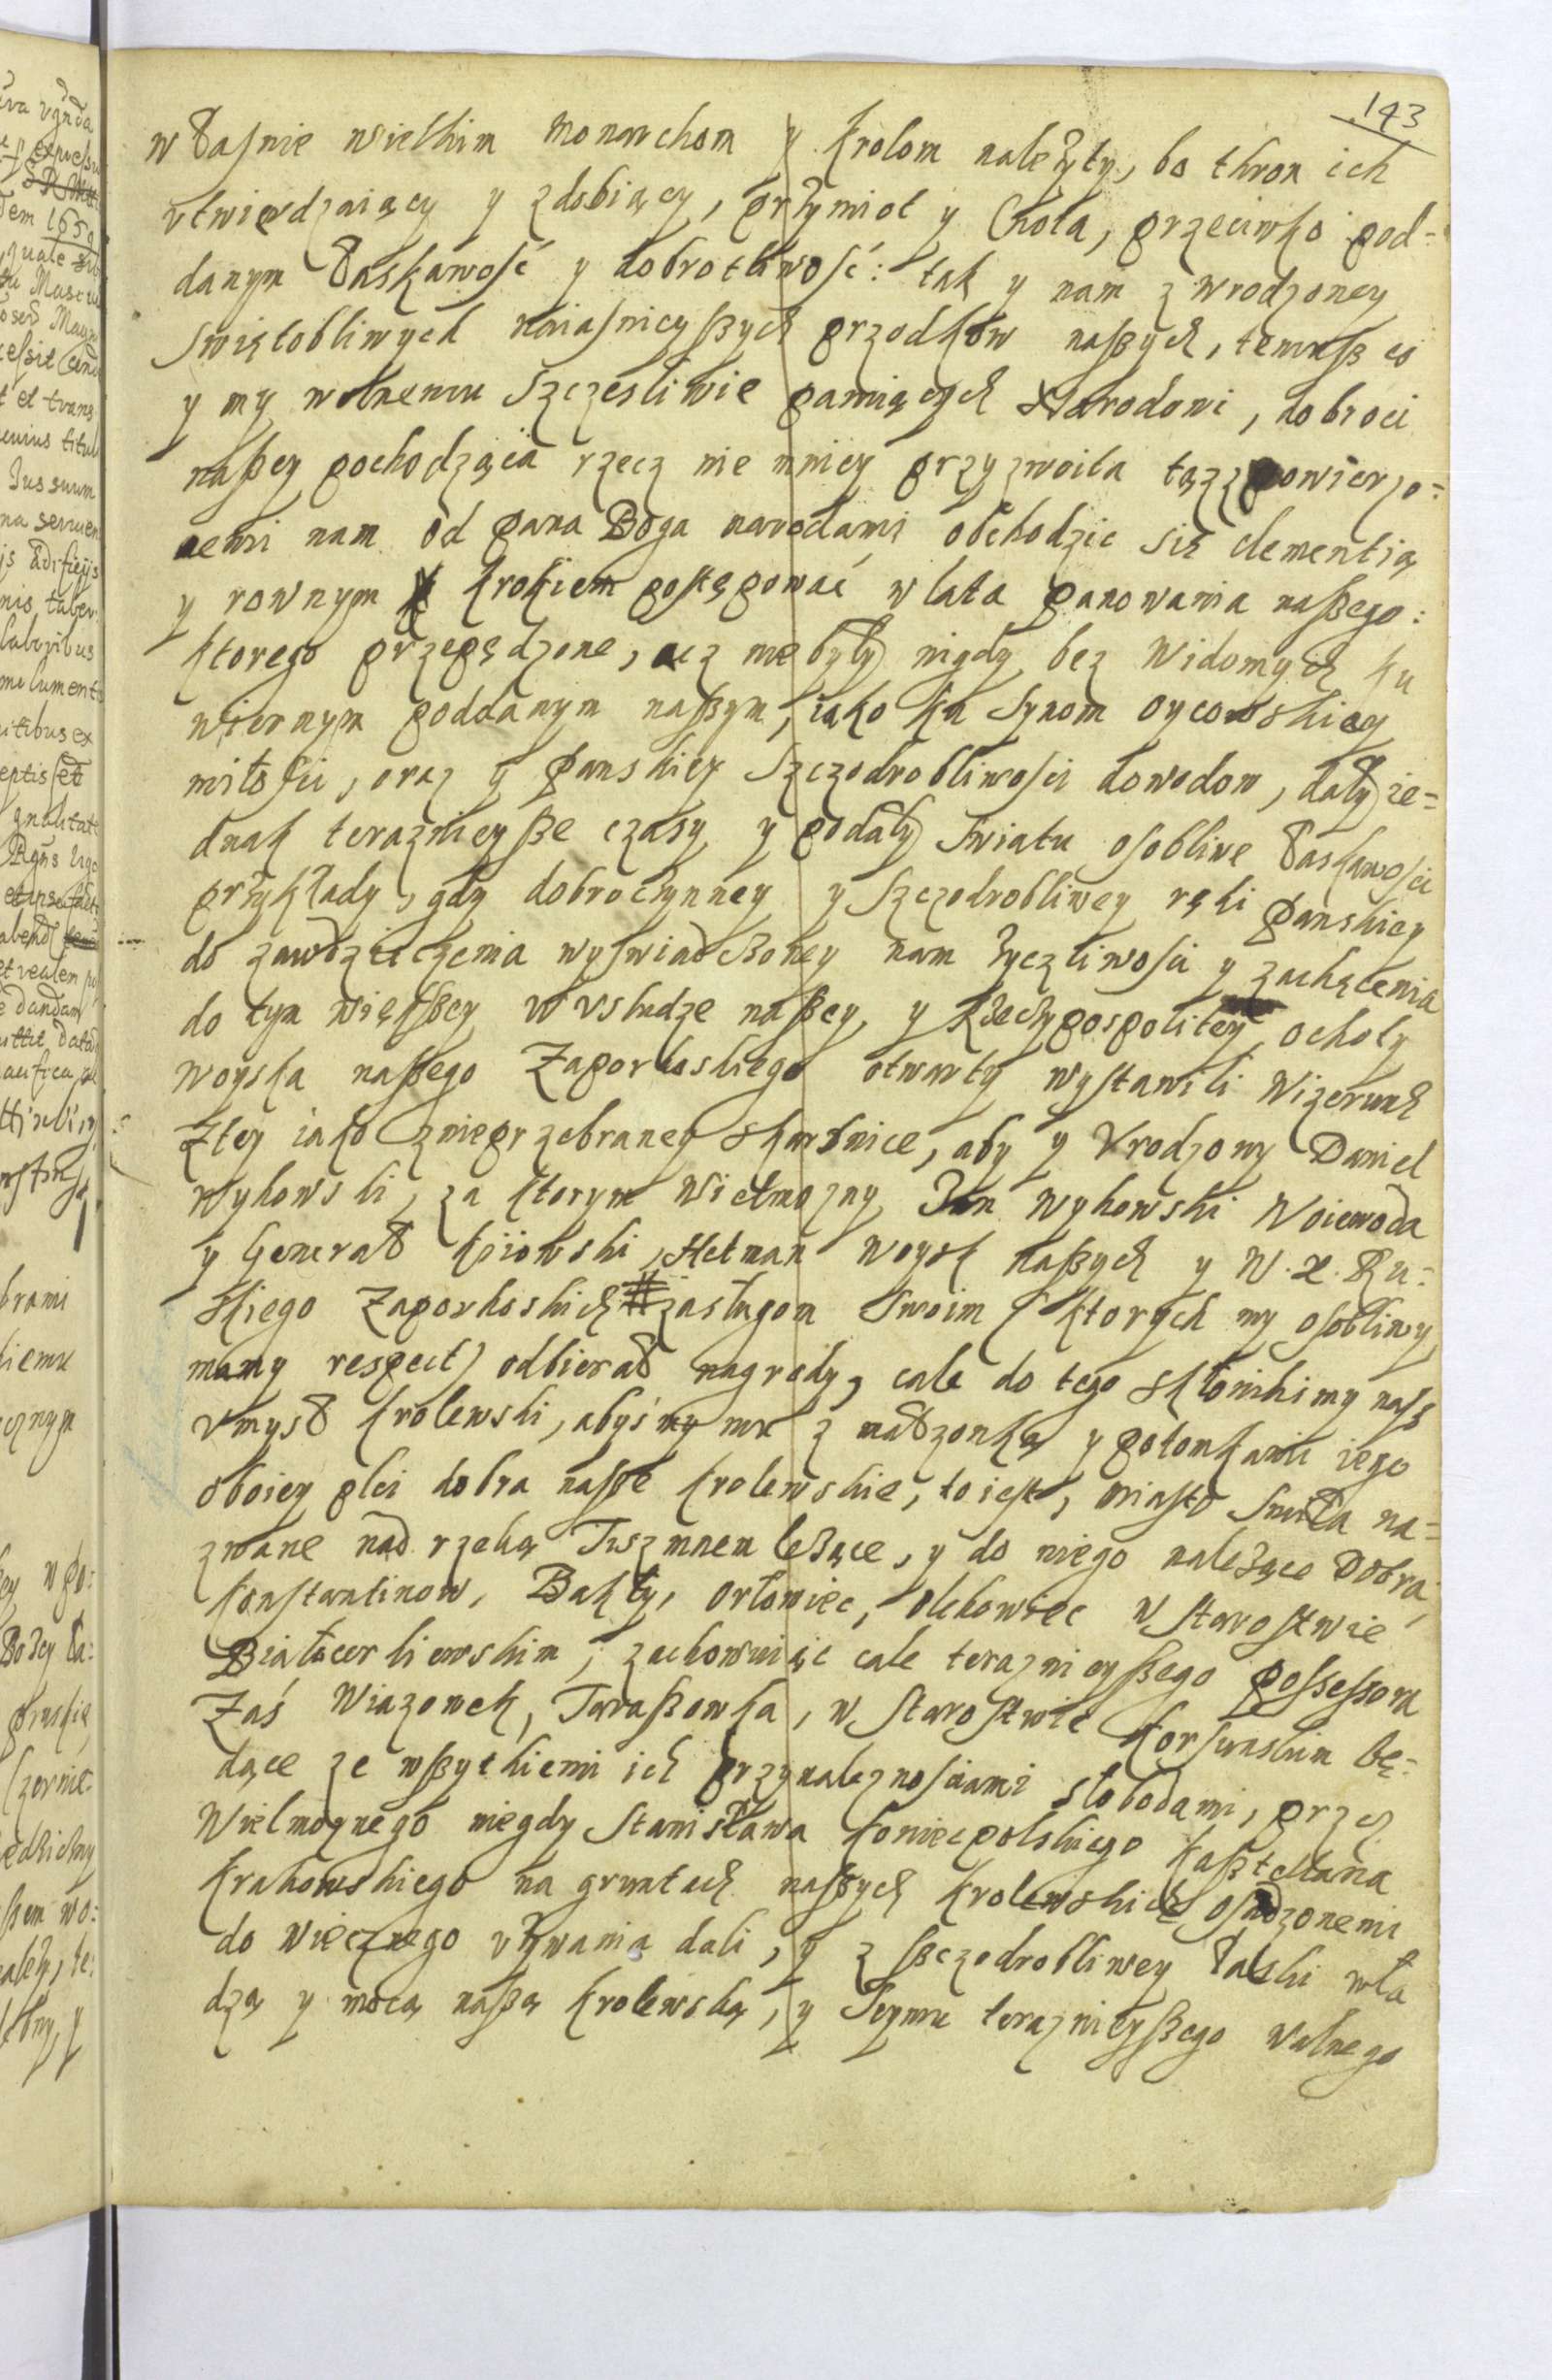 143
własnie wielkim monarchom y krolom należyty, bo thron ich
vtwierdzaiący y zdobiący, przymiot y Cnota, przeciwko pod-
danym łaskawość y dobrotliwość: tak y nam z wrodzoney
Swiętobliwych naiasnieyszych przodkow naszych, temusz co
y my wolnemu Szczesliwie panuiących Narodowi, dobroci
naszey pochodząca rzecz nie mniey przyzwoita tąż z powierzo-
nemi nam od pana Boga narodami obchodzic się clementią
y rownym krokiem postępować w lata panowania naszego:
ktorego przepędzone, acz nie były nigdy bez widomych ku
wiernym poddanym naszym, iako ku Synom oycowskiey
miłości, oraz y Panskiey Szczodrobliwości dowodow, dały ie-
dnak teraznieysze czasy y podały Swiatu osobliwe łaskawości
przykłady, gdy dobroczynney y Szczodrobliwey ręki Panskiey
do zawdzięczenia wyswiadczoney nam życzliwosci y zachęcenia
do tym większey w vsłudze naszey y Rzeczypospolitey ochoty
woyska naszego Zaporhoskiego otwarty wystawili wizerunk
Z tey iako z nieprzebraney skarbnice, aby y Vrodzony Daniel
wyhowski, za ktorym wielmozny Jan wyhowski Woiewoda
y Generał kiiowski, Hetman woysk naszych y W. X. Ru-
skiego Zaporhoskich zasługom Swoim (ktorych my osobliwy
mamy respect) odbierał nagrody, cale do tego skłonilismy nasz
vmysł krolewski, abysmy mu z małzonką y potomkami iego
oboiey płci dobra nasze krolewskie, to iest, miasto Smiła na-
zwane nad rzeką Tuszmnem leżące, y do niego należące Dobra,
konstantinow, Bakły, orłowiec, olchowiec w Starostwie
Białocerkiewskim, zachowuiąc cale teraznieyszego possessora
Zaś wiazowek, Taraszowka, w Starostwie korsunskim bę-
dące ze wszytkiemi ich przynaleznościami słobodami, przez
wielmoznego niegdy Stanisława koniecpolskiego kasztellana
krakowskiego na gruntach naszych krolewskich osadzonemi
do wiecznego vżywania dali, y z szczodrobliwey łaski wła
dzą y mocą naszą krolewską, y Seymu teraznieyszego walnego